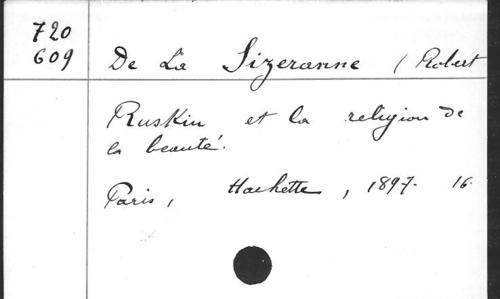 720
609
De La Sizeranne (Robert
Ruskin et la religion de
la beauté.
Paris, Hachette, 1897. 16